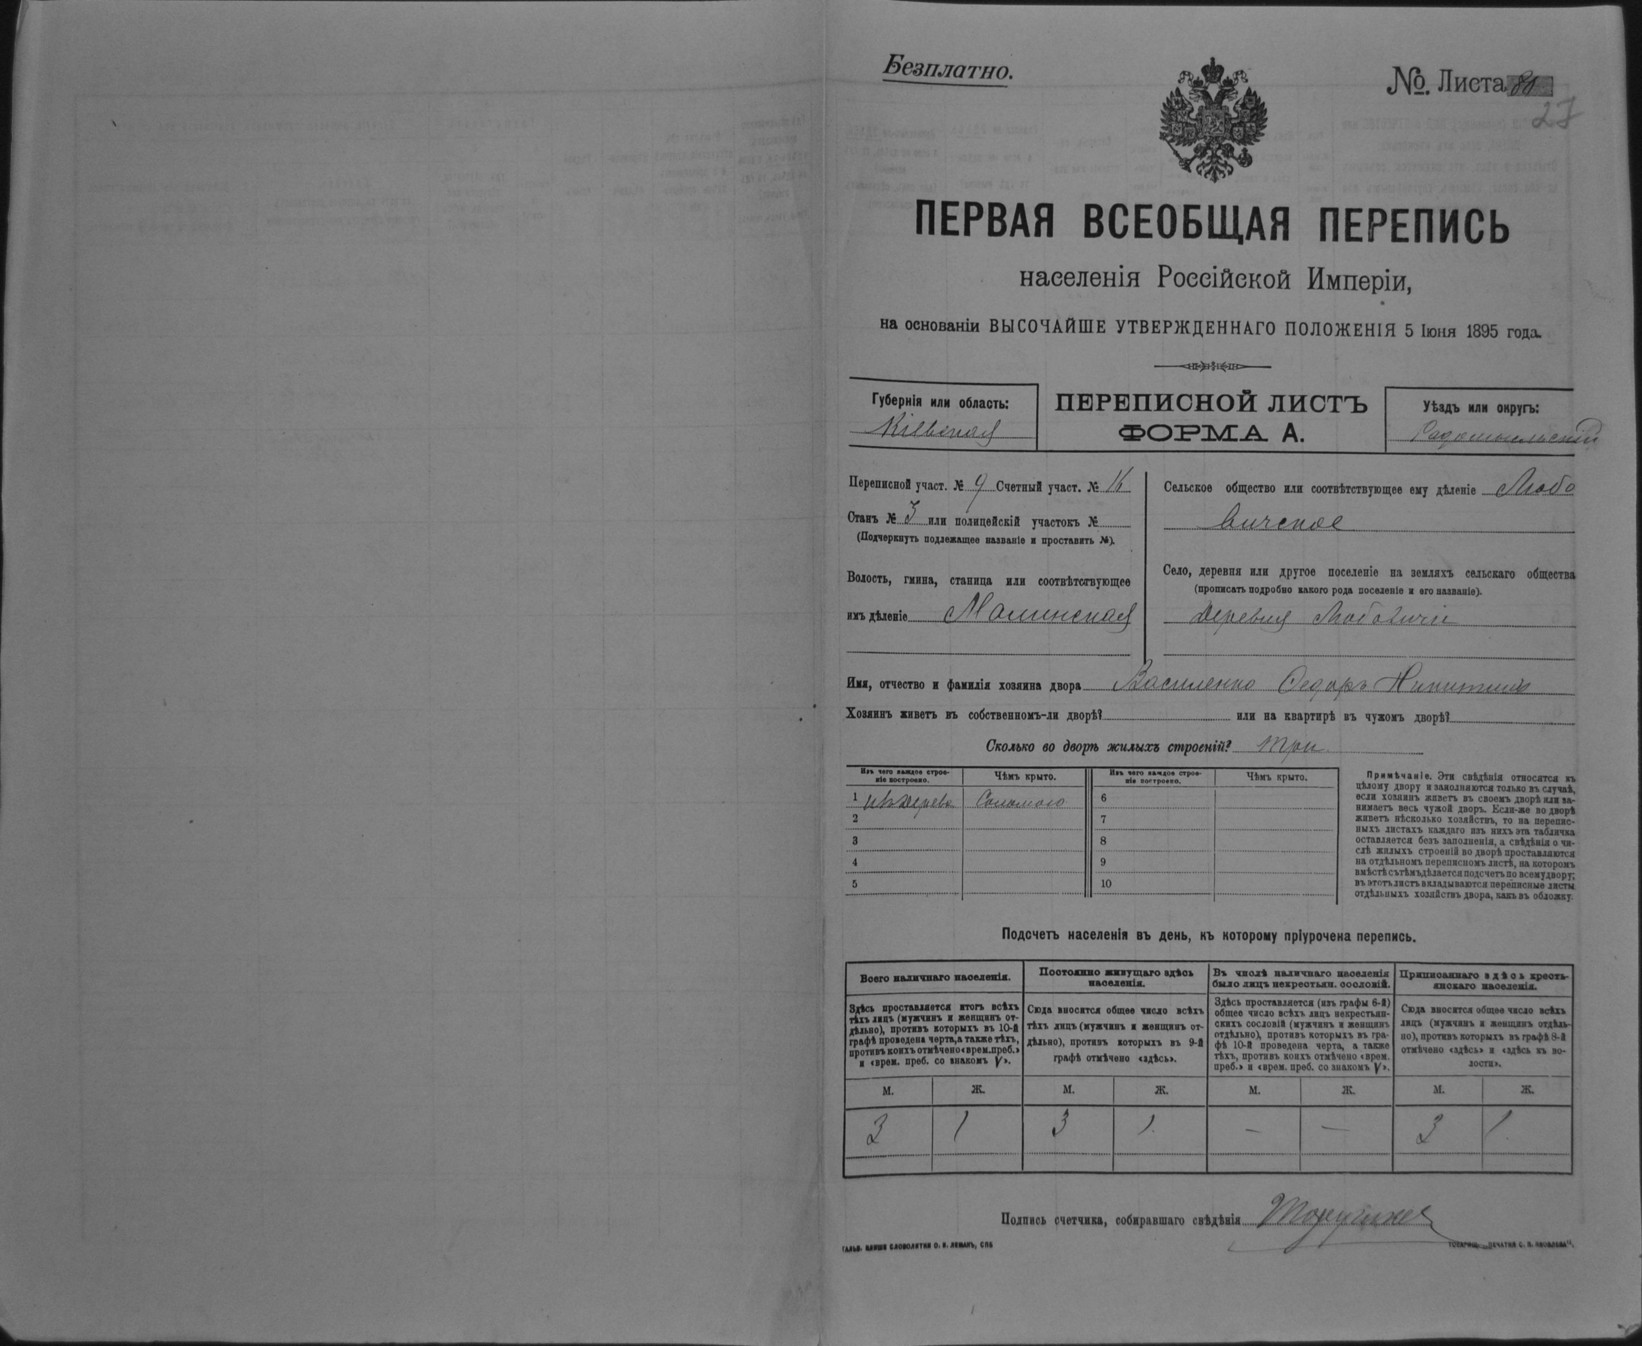 Безплатно.
№. Листа
27
ПЕРВАЯ ВСЕОБЩАЯ ПЕРЕПИСЬ
населенія Россійской Имперіи,
на основаніи ВЫСОЧАЙШЕ УТВЕРЖДЕННАГО ПОЛОЖЕНІЯ 5 Іюня 1895 года.
Губернія или область:
Кіевская
ПЕРЕПИСНОЙ ЛИСТЪ
ФОРМА А.
Уѣздъ или округъ:
Радомысльскій
Переписной участ. № 9 Счетный участ. №
Станъ № 3 или полицейскій участокъ №
(Подчеркнуть подлежащее названіе и проставить №).
Волость, гмина, станица или соотвѣтствующее
имъ дѣленіе Малинская
Сельское общество или соотвѣтствующее ему дѣленіе Любо
вичское
Село, деревня или другое поселеніе на земляхъ сельскаго общества
(прописать подробно какого рода поселеніе и его названіе).
деревня Любовичи
Имя, отчество и фамилія хозяина двора Василенко Федоръ Никитинъ
Хозяинъ живетъ въ собственномъ-ли дворѣ? или на квартирѣ въ чужомъ дворѣ?
Сколько во дворѣ жилыхъ строеній? три
Изъ чего каждое строе-
ніе построено.
Чѣмъ крыто.
Изъ чего каждое строе-
ніе построено.
Чѣмъ крыто.
1 изъ дерева Соломою 6
2 7
3 8
4 9
5 10
Примѣчаніе. Эти свѣдѣнія относятся къ
цѣлому двору и заполняются только въ случаѣ,
если хозяинъ живетъ въ своемъ дворѣ или за-
нимаетъ весь чужой дворъ. Если-же во дворѣ
живетъ нѣсколько хозяйствъ, то на перепис-
ныхъ листахъ каждаго изъ нихъ эта табличка
оставляется безъ заполненія, а свѣдѣнія о чи-
слѣ жилыхъ строеній во дворѣ проставляются
на отдѣльномъ переписномъ листѣ, на которомъ
вмѣстѣ съ тѣмъ дѣлается подсчетъ по всему двору;
въ этотъ листъ вкладываются переписные листы
отдѣльныхъ хозяйствъ двора, какъ въ обложку.
Подсчетъ населенія въ день, къ которому пріурочена перепись.
Всего наличнаго населенія.
Здѣсь проставляется итогъ всѣхъ
тѣхъ лицъ (мужчинъ и женщинъ от-
дѣльно), противъ которыхъ въ 10-й
графѣ проведена черта, а также тѣхъ,
противъ коихъ отмѣчено «врем. преб.»
и «врем. преб. со знакомъ V».
Постоянно живущаго здѣсь
населенія.
Сюда вносится общее число всѣхъ
тѣхъ лицъ (мужчинъ и женщинъ от-
дѣльно), противъ которыхъ въ 9-й
графѣ отмѣчено «здѣсь».
Въ числѣ наличнаго населенія
было лицъ некрестьян. сословій.
Здѣсь проставляется (изъ графы 6-й)
общее число всѣхъ лицъ некрестьян-
скихъ сословій (мужчинъ и женщинъ
отдѣльно), противъ которыхъ въ гра-
фѣ 10-й проведена черта, а также
тѣхъ, противъ коихъ отмѣчено «врем.
преб.» и «врем. преб. со знакомъ V».
Приписаннаго здѣсь кресть-
янскаго населенія.
Сюда вносится общее число всѣхъ
лицъ (мужчинъ и женщинъ отдѣль-
но), противъ которыхъ въ графѣ 8-й
отмѣчено «здѣсь» и «здѣсь къ во-
лости».
М. Ж. М. Ж. М. Ж. М. Ж.
3 1 3 1. — — 3 1
Подпись счетчика, собиравшаго свѣдѣнія